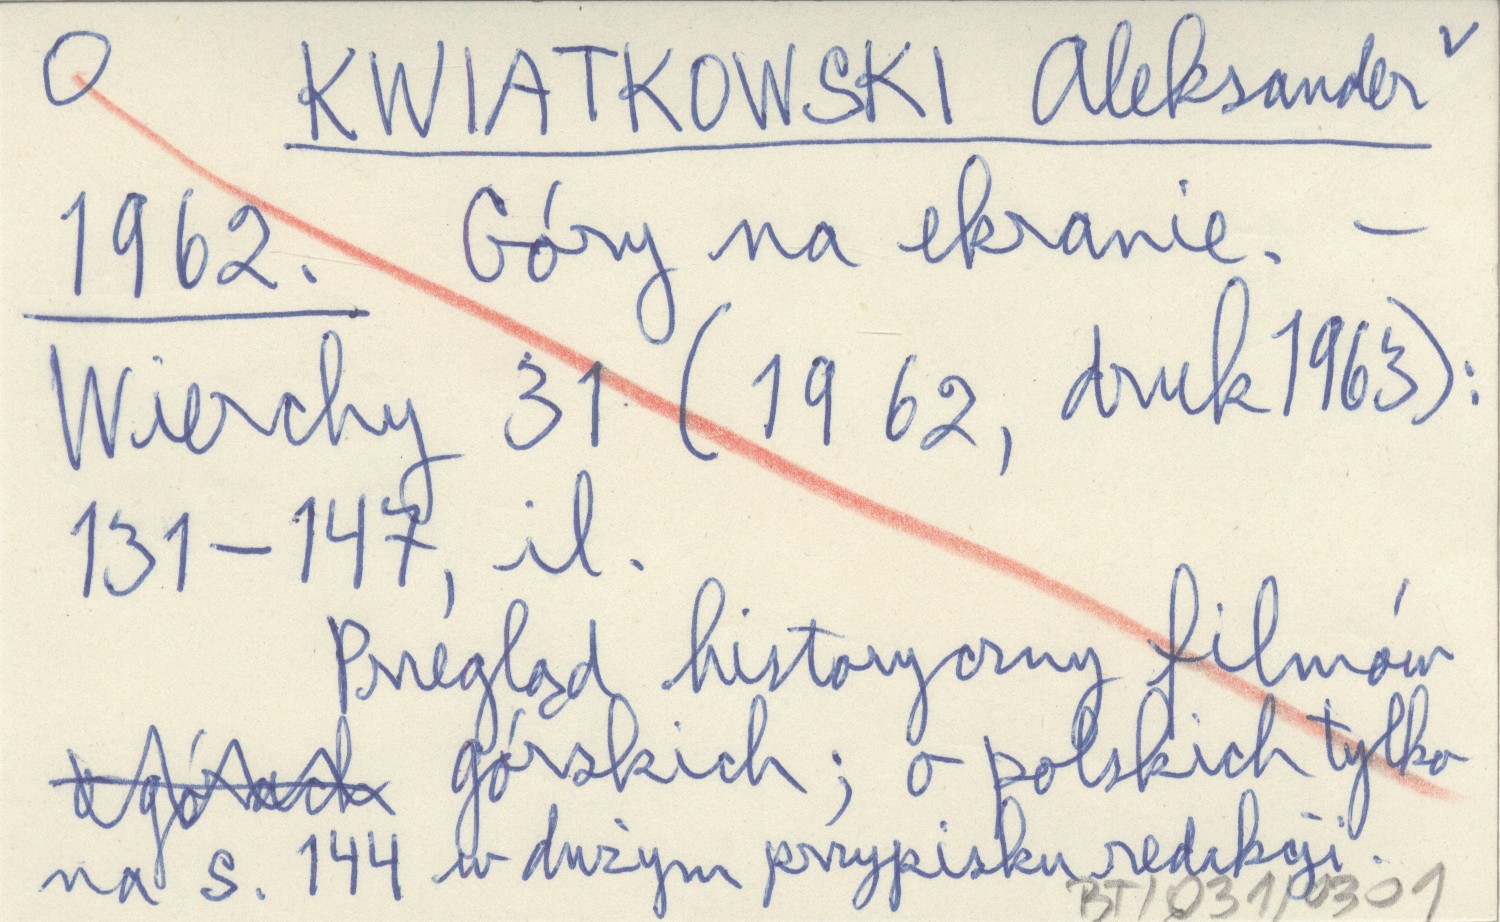 O KWIATKOWSKI Aleksander ✓
1962. Góry na ekranie. –
Wierchy 31 (1962, druk 1963):
131–147, il.
Przegląd historyczny filmów
o górach górskich; o polskich tylko
na s. 144 w dużym przypisku redakcji.
BT/031/0301